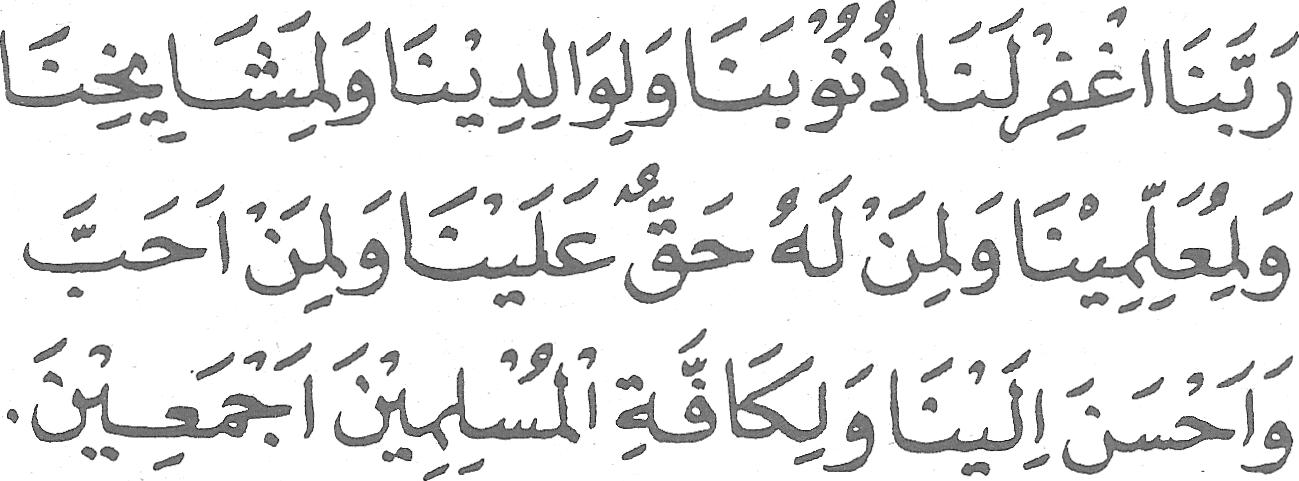 رَبَّنَا اغْفِرْ لَنَا ذُنُوْبَنَا وَلِوَالِدِيْنَا وَلِمَشَايِخِنَا
وَلِمُعَلِّمِيْنَا وَلِمَنْ لَهُ حَقٌّ عَلَيْنَا وَلِمَنْ اَحَبَّ
وَاَحْسَنَ اِلَيْنَا وَلِكَافَّةِ الْمُسْلِمِيْنَ اَجْمَعِيْنَ.